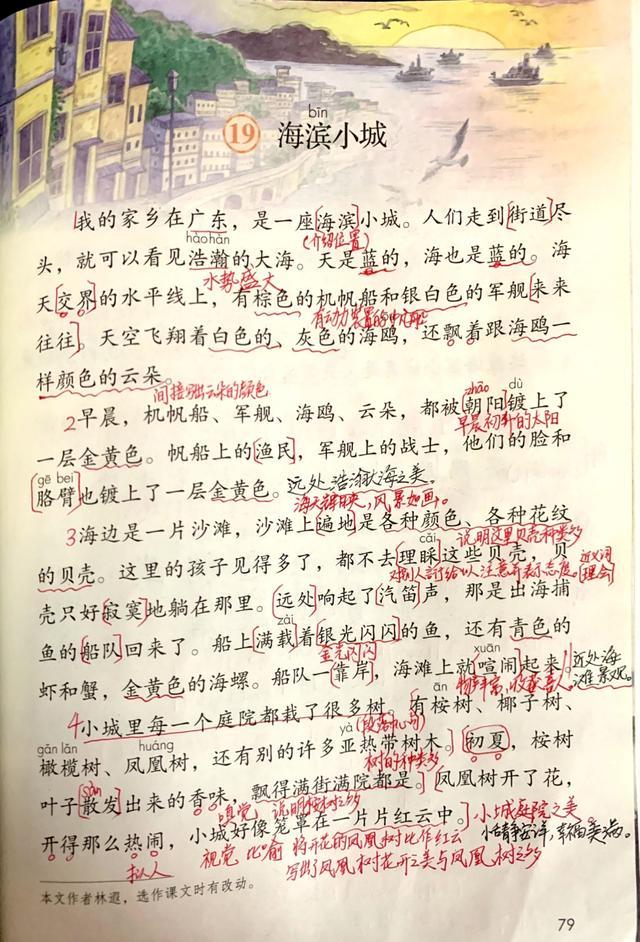 bīn
19 海滨小城
1我的家乡在广东，是一座海滨小城。人们走到街道尽
(介绍位置)
hào hàn
头，就可以看见浩瀚的大海。天是蓝的，海也是蓝的。海
水势盛大
天交界的水平线上，有棕色的机帆船和银白色的军舰来来
有动力装置的帆船
往往。天空飞翔着白色的、灰色的海鸥，还飘着跟海鸥一
样颜色的云朵。
间接写出云朵的颜色
zhāo dù
2早晨，机帆船、军舰、海鸥、云朵，都被朝阳镀上了
早晨初升的太阳
一层金黄色。帆船上的渔民，军舰上的战士，他们的脸和
gē bei
胳臂也镀上了一层金黄色。远处浩瀚大海之美。
风景如画。
3海边是一片沙滩，沙滩上遍地是各种颜色、各种花纹
说明这里贝壳种类多
cǎi
的贝壳。这里的孩子见得多了，都不去理睬这些贝壳，贝
对别人讨给以注意并表示态度。近义词
理会
壳只好寂寞地躺在那里。远处响起了汽笛声，那是出海捕
zài
鱼的船队回来了。船上满载着银光闪闪的鱼，还有青色的
金光闪闪
虾和蟹，金黄色的海螺。船队一靠岸，海滩上就喧闹起来。
xuān
近处海
滩景观。
物产丰富，收获喜人
4小城里每一个庭院都栽了很多树。有桉树、椰子树、
(段落中心句)
ān
gǎn lǎn huáng yà
橄榄树、凤凰树，还有别的许多亚热带树木。初夏，桉树
树的种类多
叶子散发出来的香味，飘得满街满院都是。凤凰树开了花，
sàn
嗅觉 说明桉树之多
开得那么热闹，小城好像笼罩在一片片红云中。
小城庭院之美
幸福美满。
拟人
视觉 比喻 将开花的凤凰树比作红云
写出了凤凰树花开之美与凤凰树之多
本文作者林遐，选作课文时有改动。
79